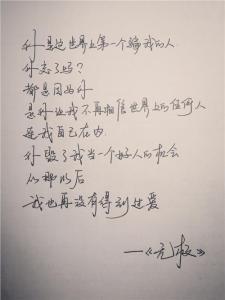 你是这世界上第一个骗我的人
你忘了吗?
都是因为你
是你让我不再相信世界上的任何人
连我自己在内
你毁了我当一个好人的机会
从那以后
我也再没有得到过爱
——《无极》